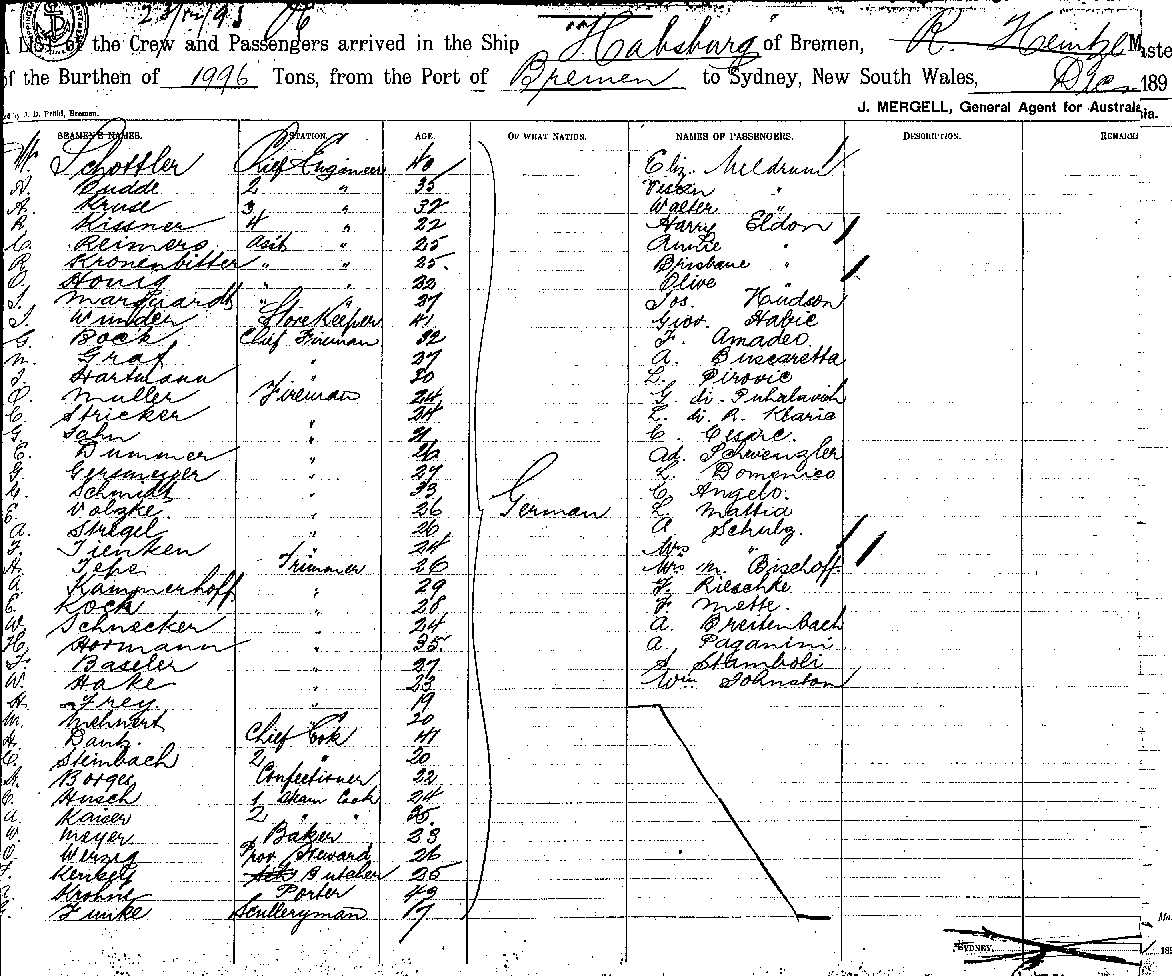 23/12/95 06
A List of the Crew and Passengers arrived in the Ship "Habsburg" of Bremen, R. Heintze Maste
of the Burthen of 1996 Tons, from the Port of Bremen to Sydney, New South Wales, Dec 189
J. D. Pettid, Bremen. J. MERGELL, General Agent for Australia.
SEAMEN'S NAMES. STATION. AGE. OF WHAT NATION. NAMES OF PASSENGERS. DESCRIPTION. REMARKS
W. Schottler Chief Engineer 40 Eliz. Meldrum
A. Budde 2 " 35 "
A. Kruse 3 " 32 Walter "
R. Kissner 4 " 22 Harry Eldon
C. Reimers Asst " 25 Annie "
R. Kronenbitter " " 25 Brisbane "
O. Honig " " 32 Olive "
J. Marquardt " " 37 Jos. Hudson
J. Wunder Storekeeper 41 Giov. Habic
G. Bock Chief Fireman 32 F. Amadeo
M. Graf " 37 A. Buscaretta
J. Hartmann " 30 L. Pirovic
O. Muller Fireman 24 G. di Puhalovich
E. Stricker " 24 L. di R. Klaric
G. Jahn " 21 C. Cesare.
E. Dummer " 26 Ad. Schwenzler
G. Gersmeyer " 27 L. Domenico
G. Schmidt " 33 C. Angelo.
E. Volzke " 26 German L. Mattia
A. Stregel " 26 A. Schulz
F. Tienken " 24 Mrs "
H. Tepe Trimmer 26 Mrs M. Bischoff
A. Kammerhoff " 29 F. Rieschke
E. Kock " 28 F. Mette.
W. Schnecker " 24 A. Breitenbach
H. Hormann " 35 A. Paganini
F. Baseler " 27 S. Stamboli
W. Hake " 23 Wm Johnston
H. Frey " 19
M. Mehnert " 20
A. Dantz Chief Cook 41
C. Steinbach 2 " 20
A. Borges Confectioner 22
E. Husch 1 Steam Cook 24
A. Kaiser 2 " " 25
W. Meyer Baker 23
O. Werzig Prov Steward 26
Kenkel Butcher 25
Krohne Porter 49
Funke Sculleryman 17
SYDNEY, 189